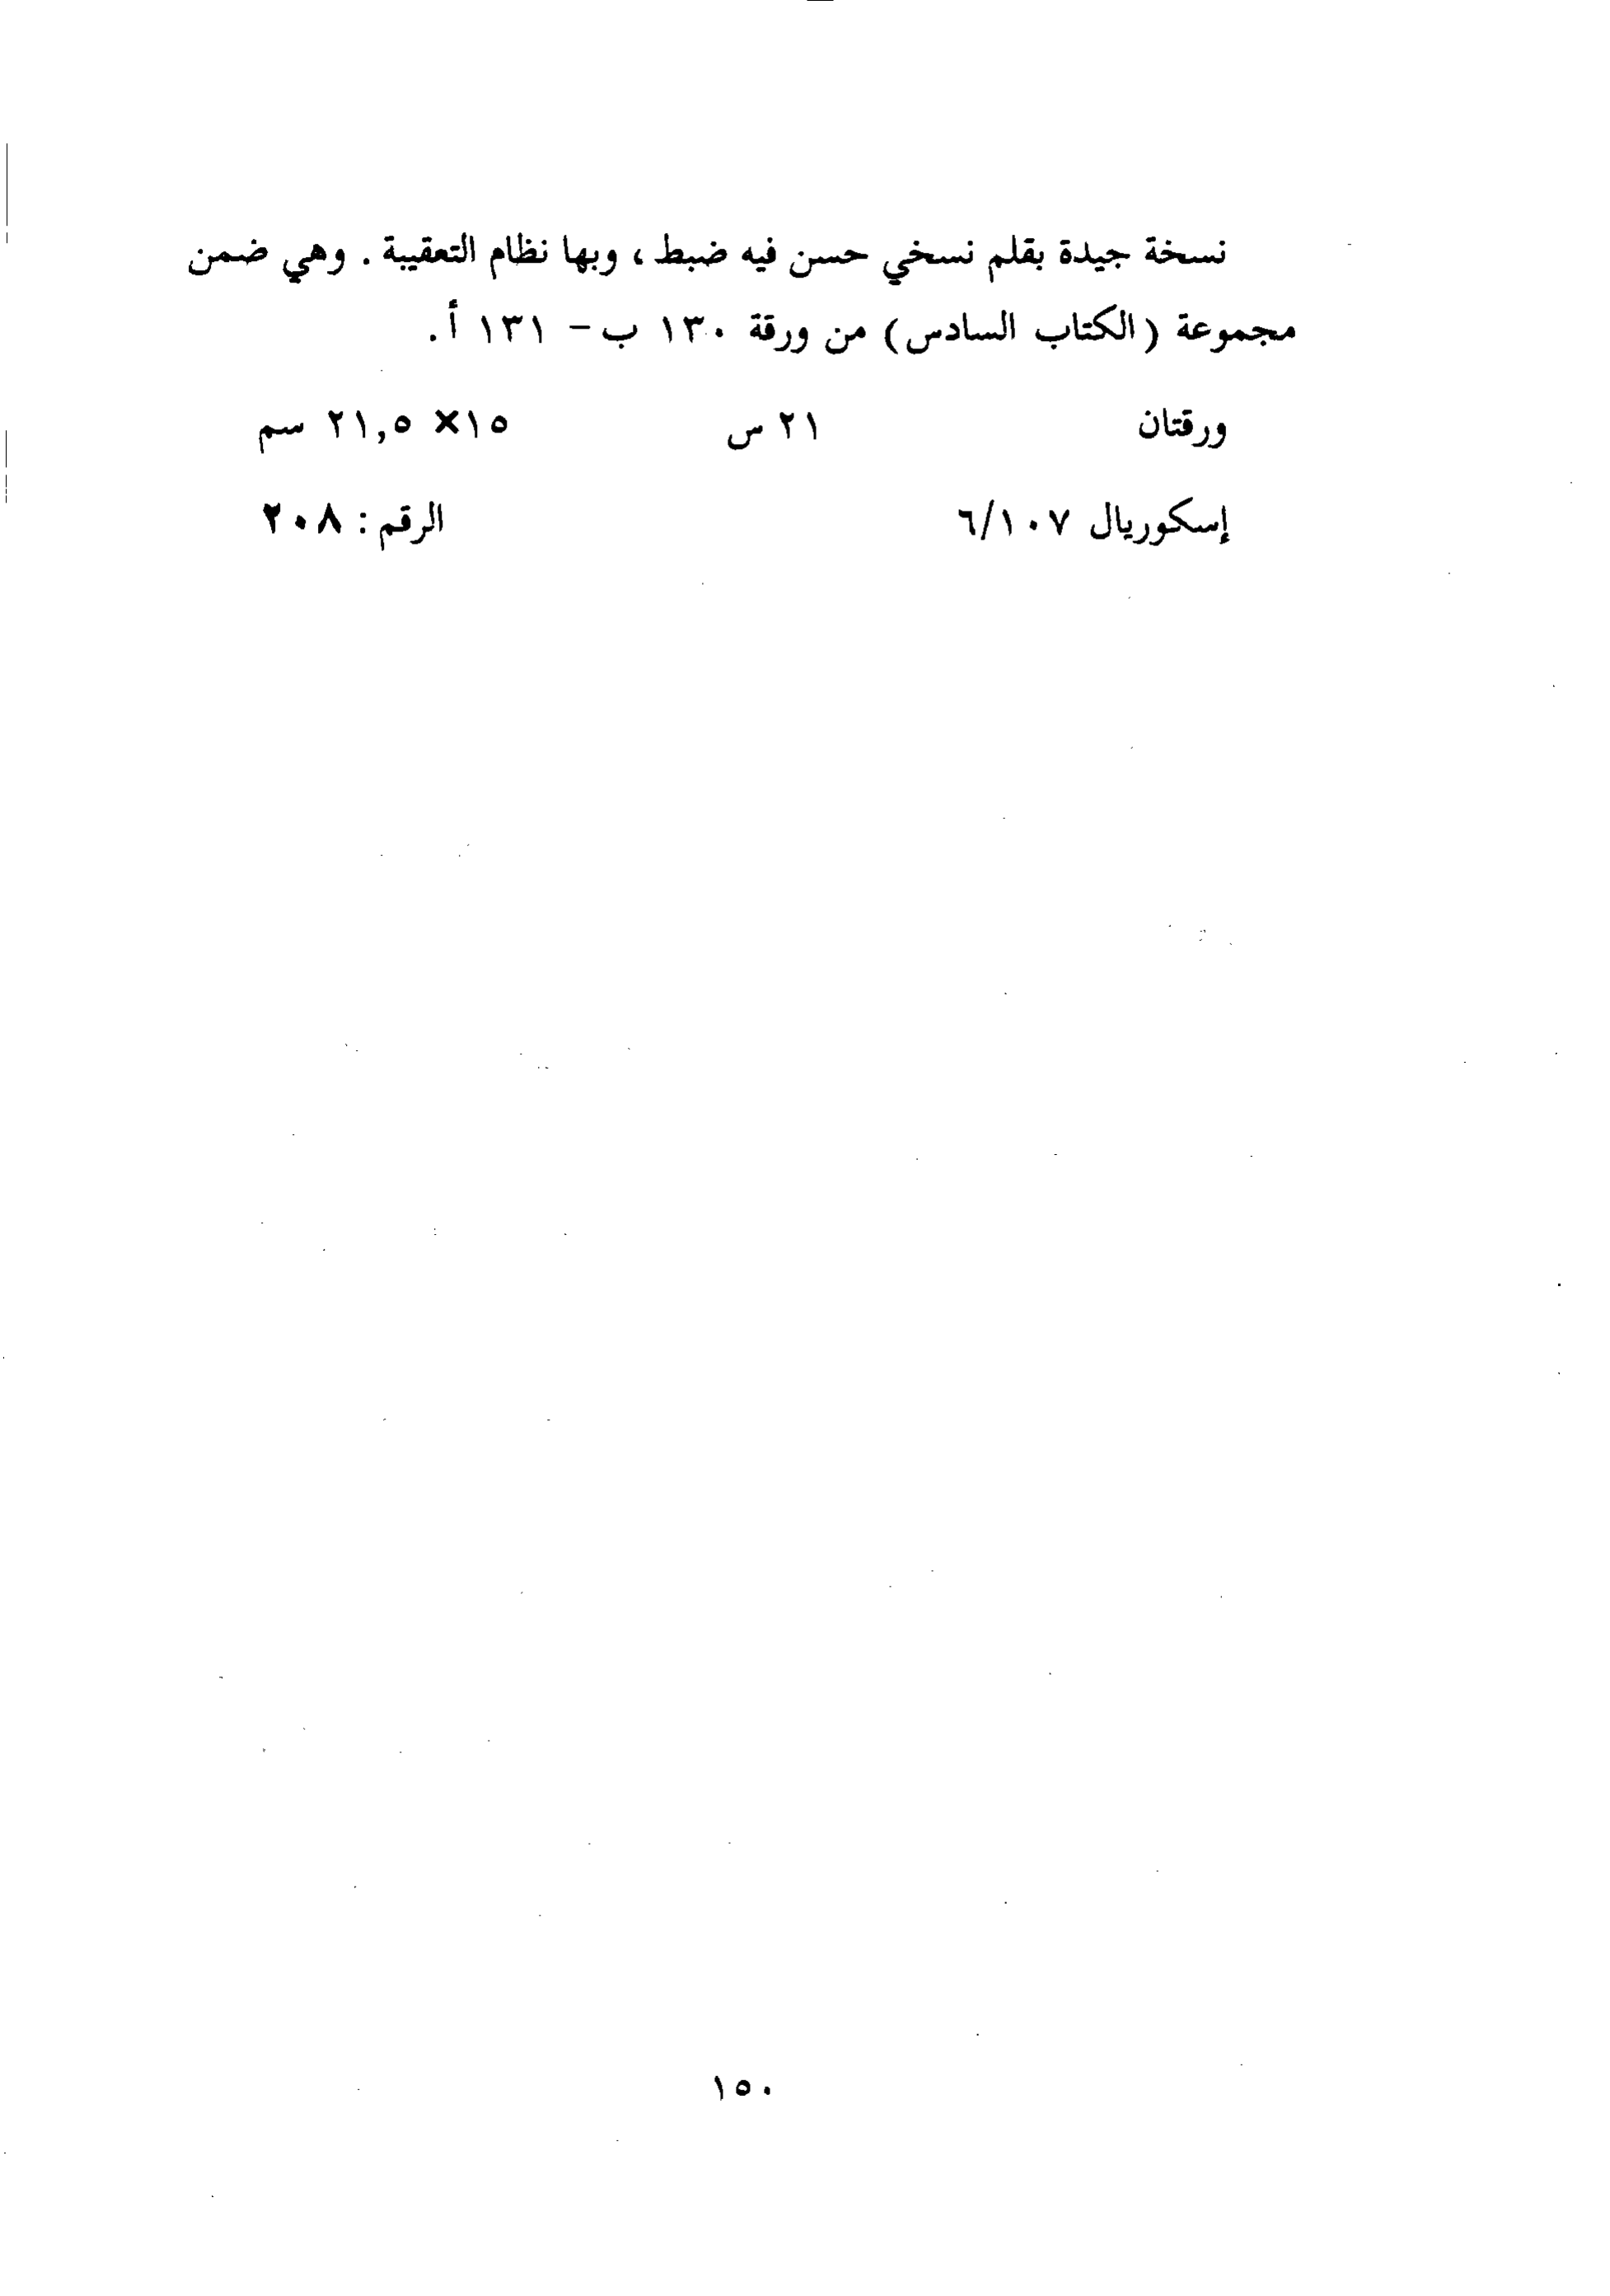 نسخة جيدة بقلم نسخي حسن فيه ضبط ، وبها نظام التعقيبة . وهي ضمن
مجموعة ( الكتاب السادس ) من ورقة ١٣٠ ب - ١٣١ أ .
ورقتان ٢١ س ١٥× ٢١,٥ سم
إسكوريال ٦/١٠٧ الرقم : ٢٠٨
١٥٠